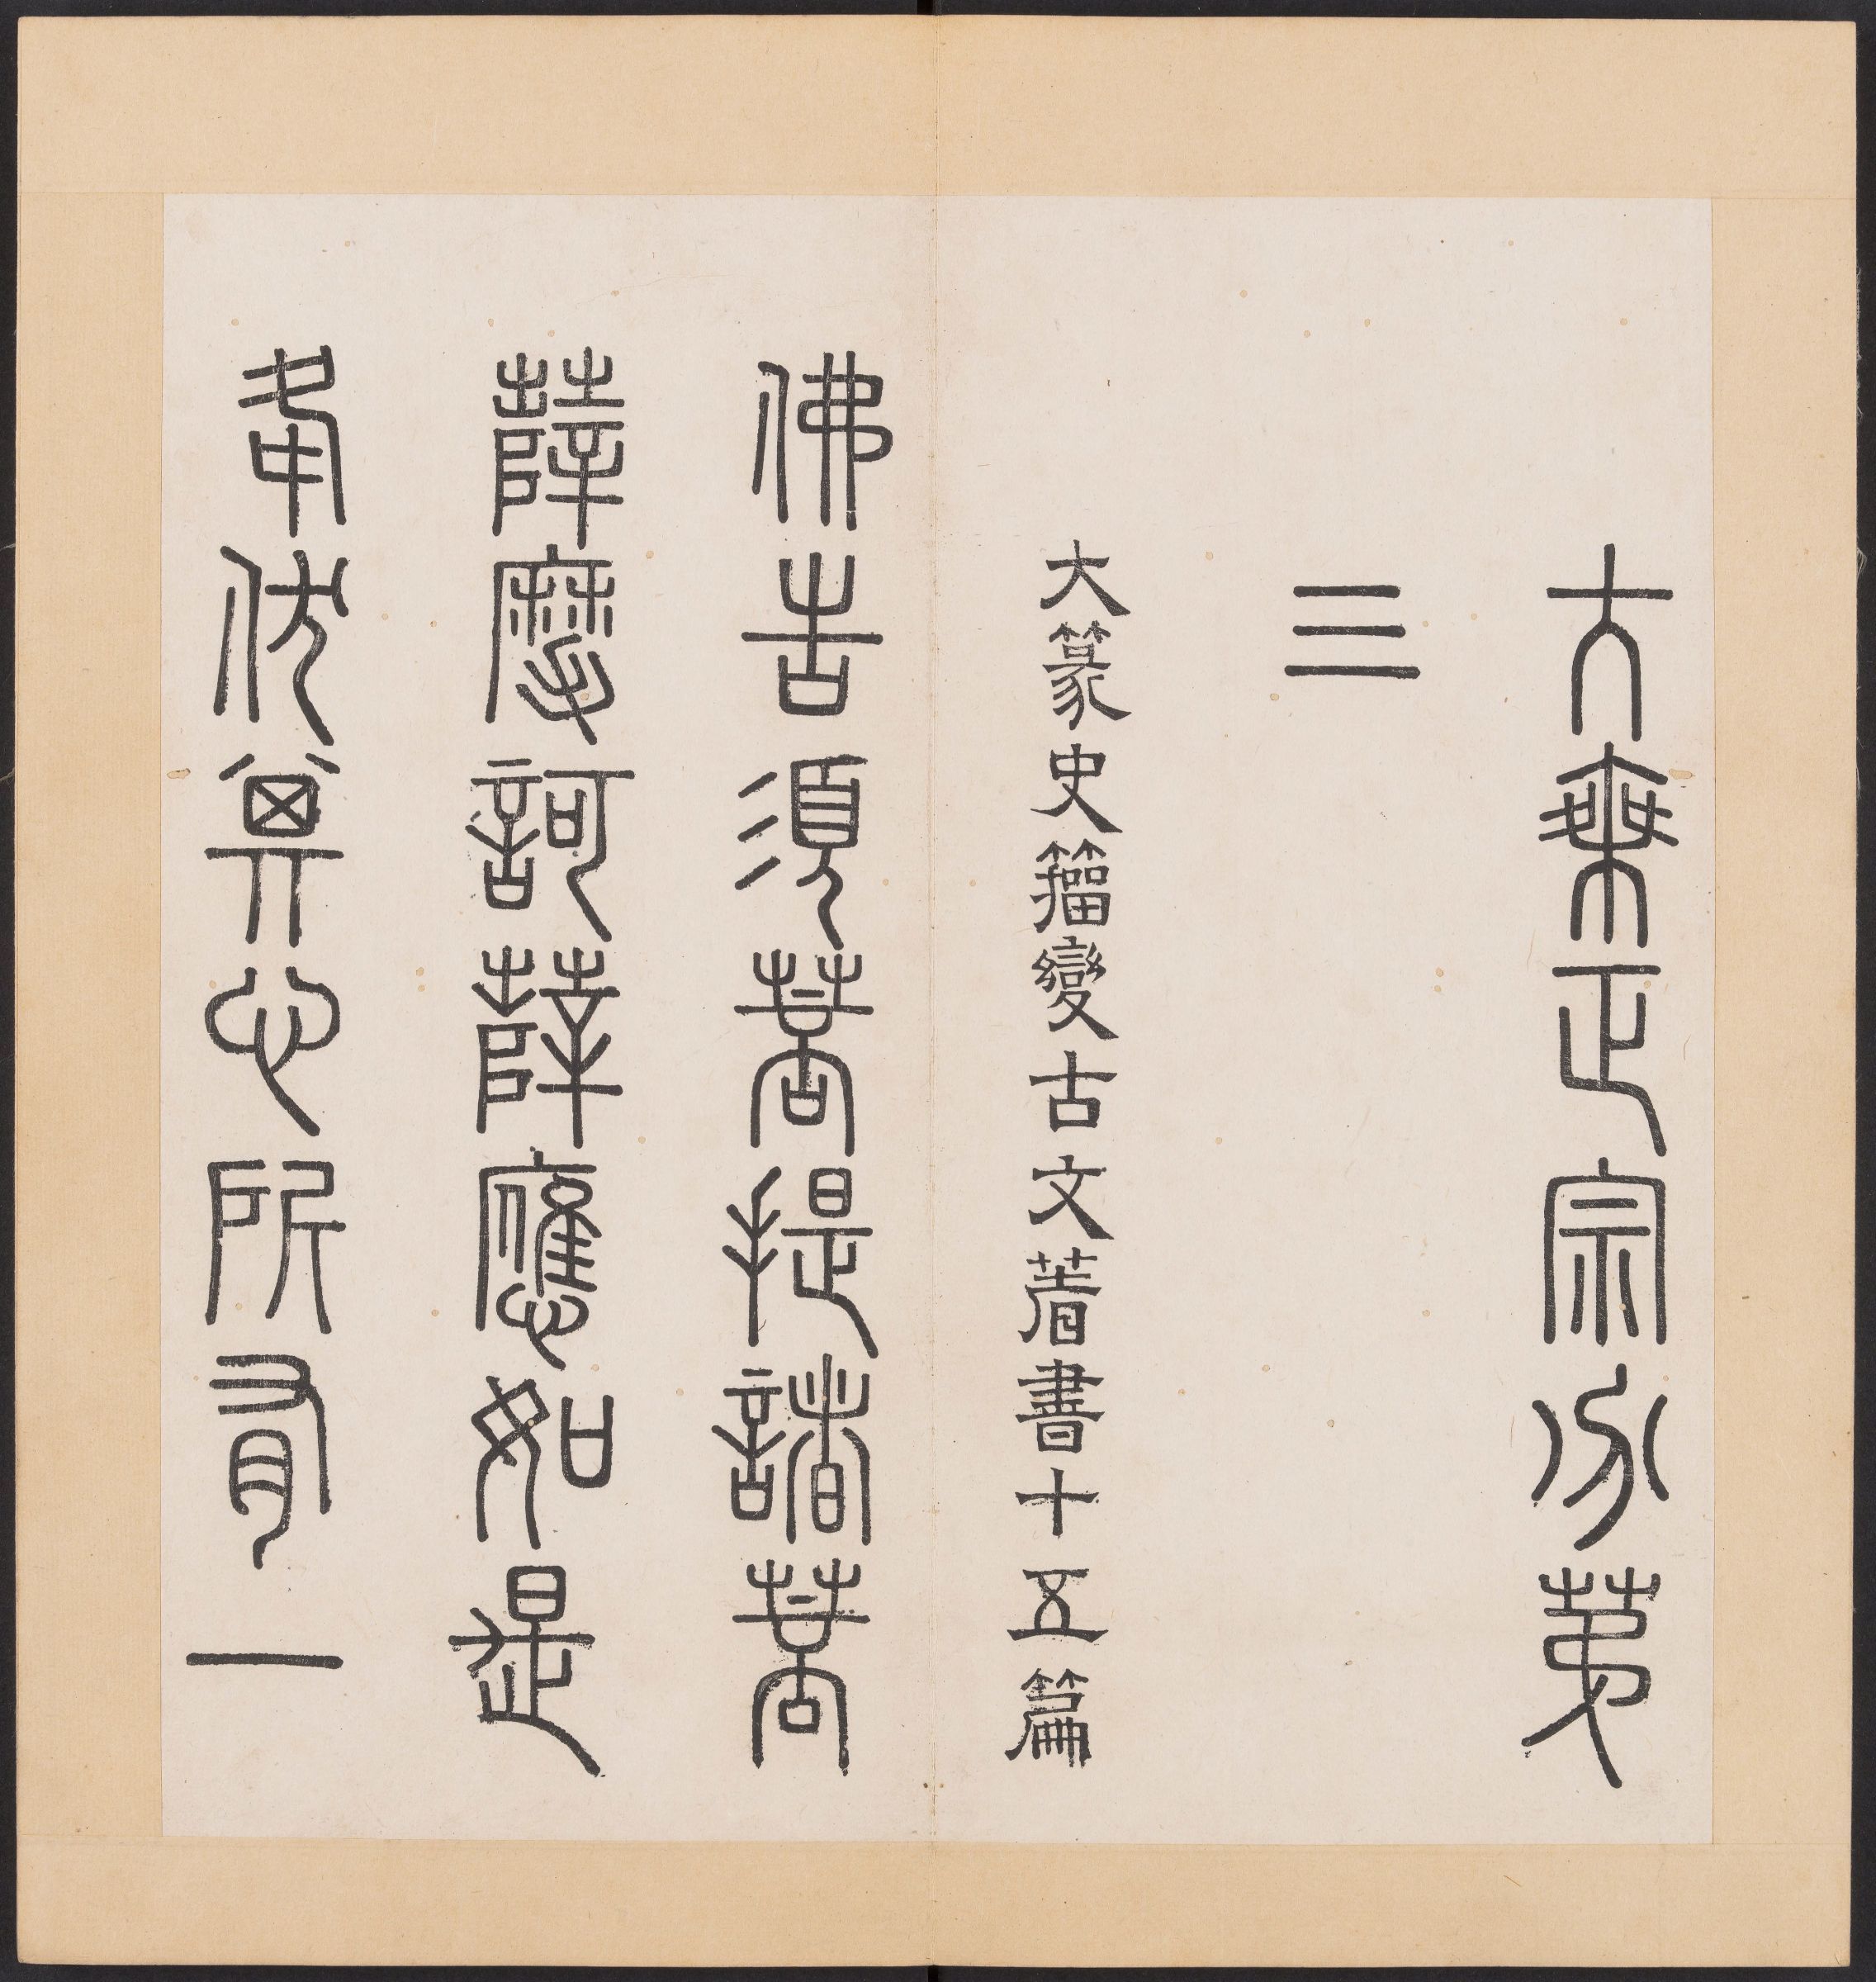 大乘正宗分第
三
大篆史籀變古文著書十五篇
佛告須菩提諸菩
薩摩訶薩應如是
降伏其心所有一